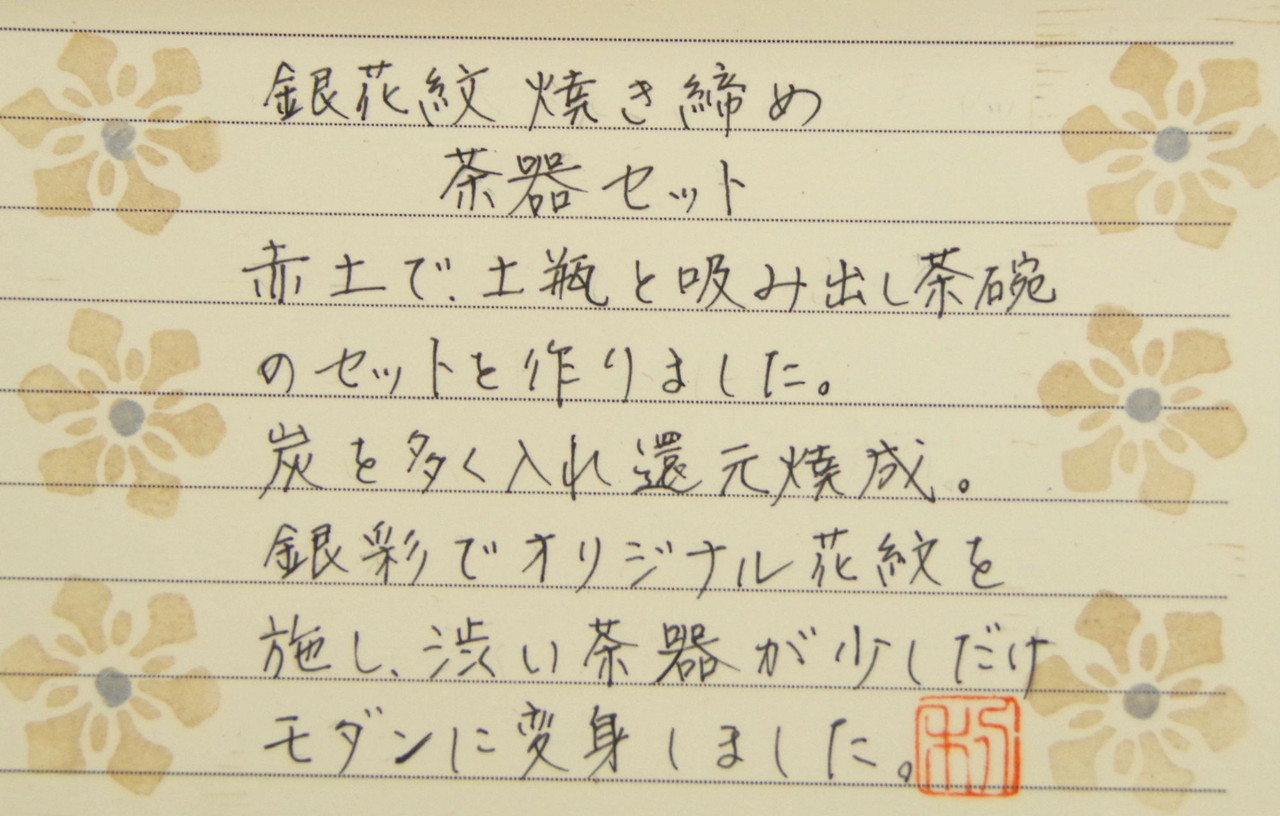 銀花紋 焼き締め
茶器セット
赤土で、土瓶と吸み出し茶碗
のセットを作りました。
炭を多く入れ還元焼成。
銀彩でオリジナル花紋を
施し、渋い茶器が少しだけ
モダンに変身しました。